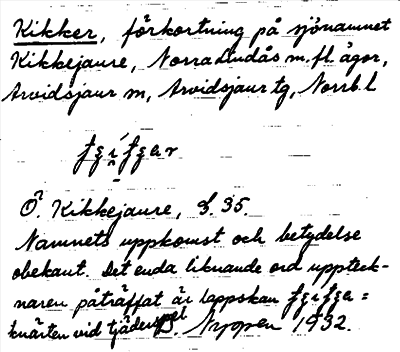 Kikker, förkortning på sjönamnet
Kikkejaure, Norra Lindås m. fl. ägor,
Arvidsjaur m, Arvidsjaur tg, Norrb. l
Ö. Kikkejaure, s. 35.
Namnets uppkomst och betydelse
obekant. Det enda liknande ord uppteck-
naren påträffat är lappskan
knärten vid
Nyopen 1932.